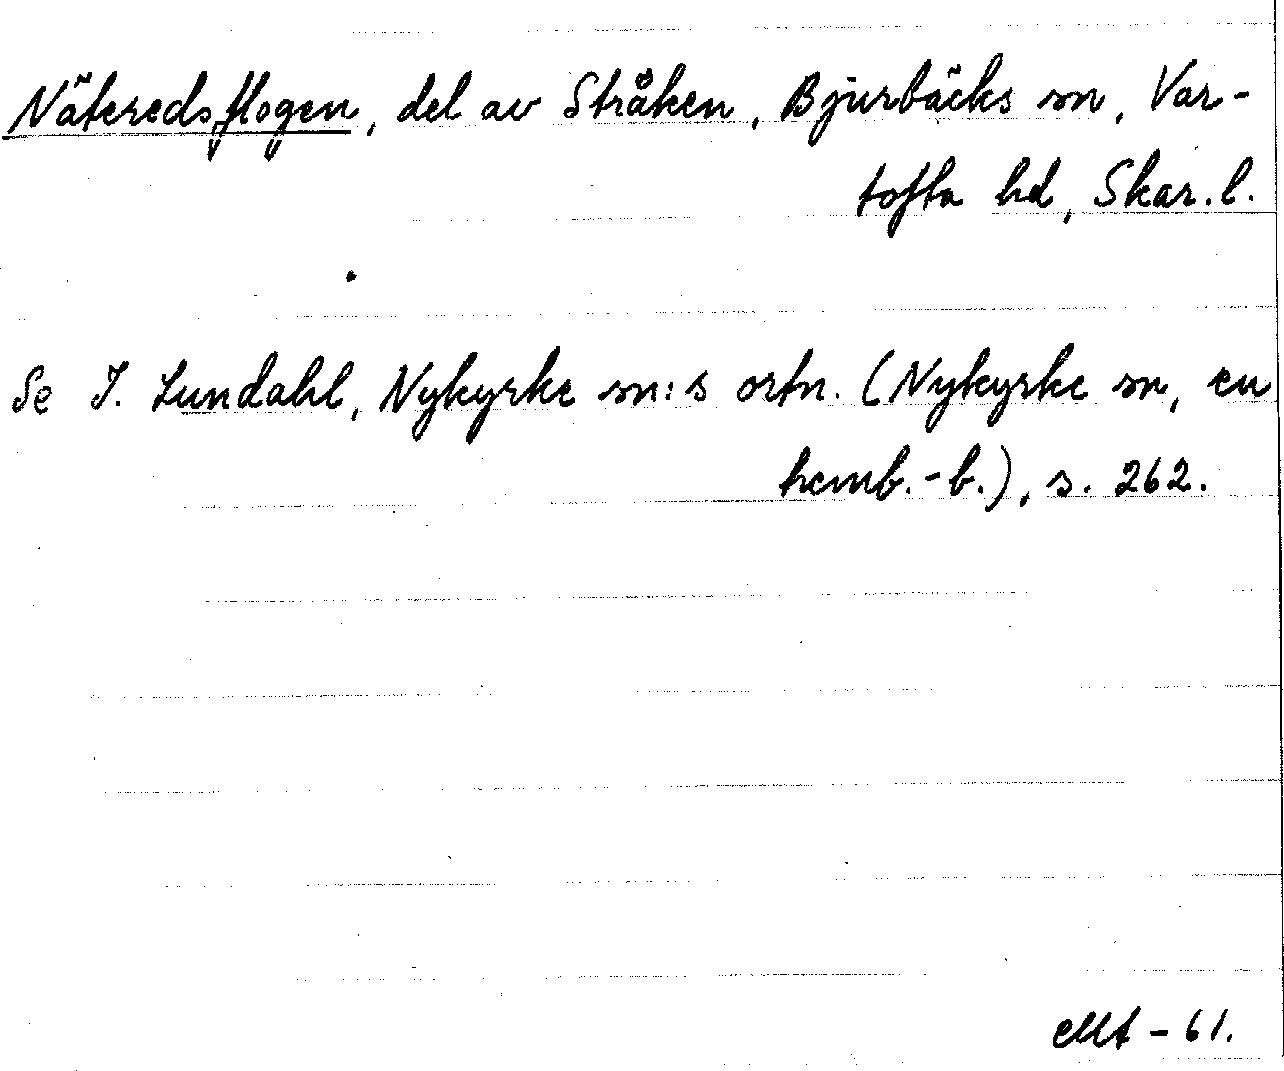 Näteredsflogen, del av Stråken, Bjurbäcks sn, Var-
tofta hd, Skar.l.
Se I. Lundahl, Nykyrke sn:s ortn. (Nykyrke sn, en
hemb.-b.), s. 262.
-61.